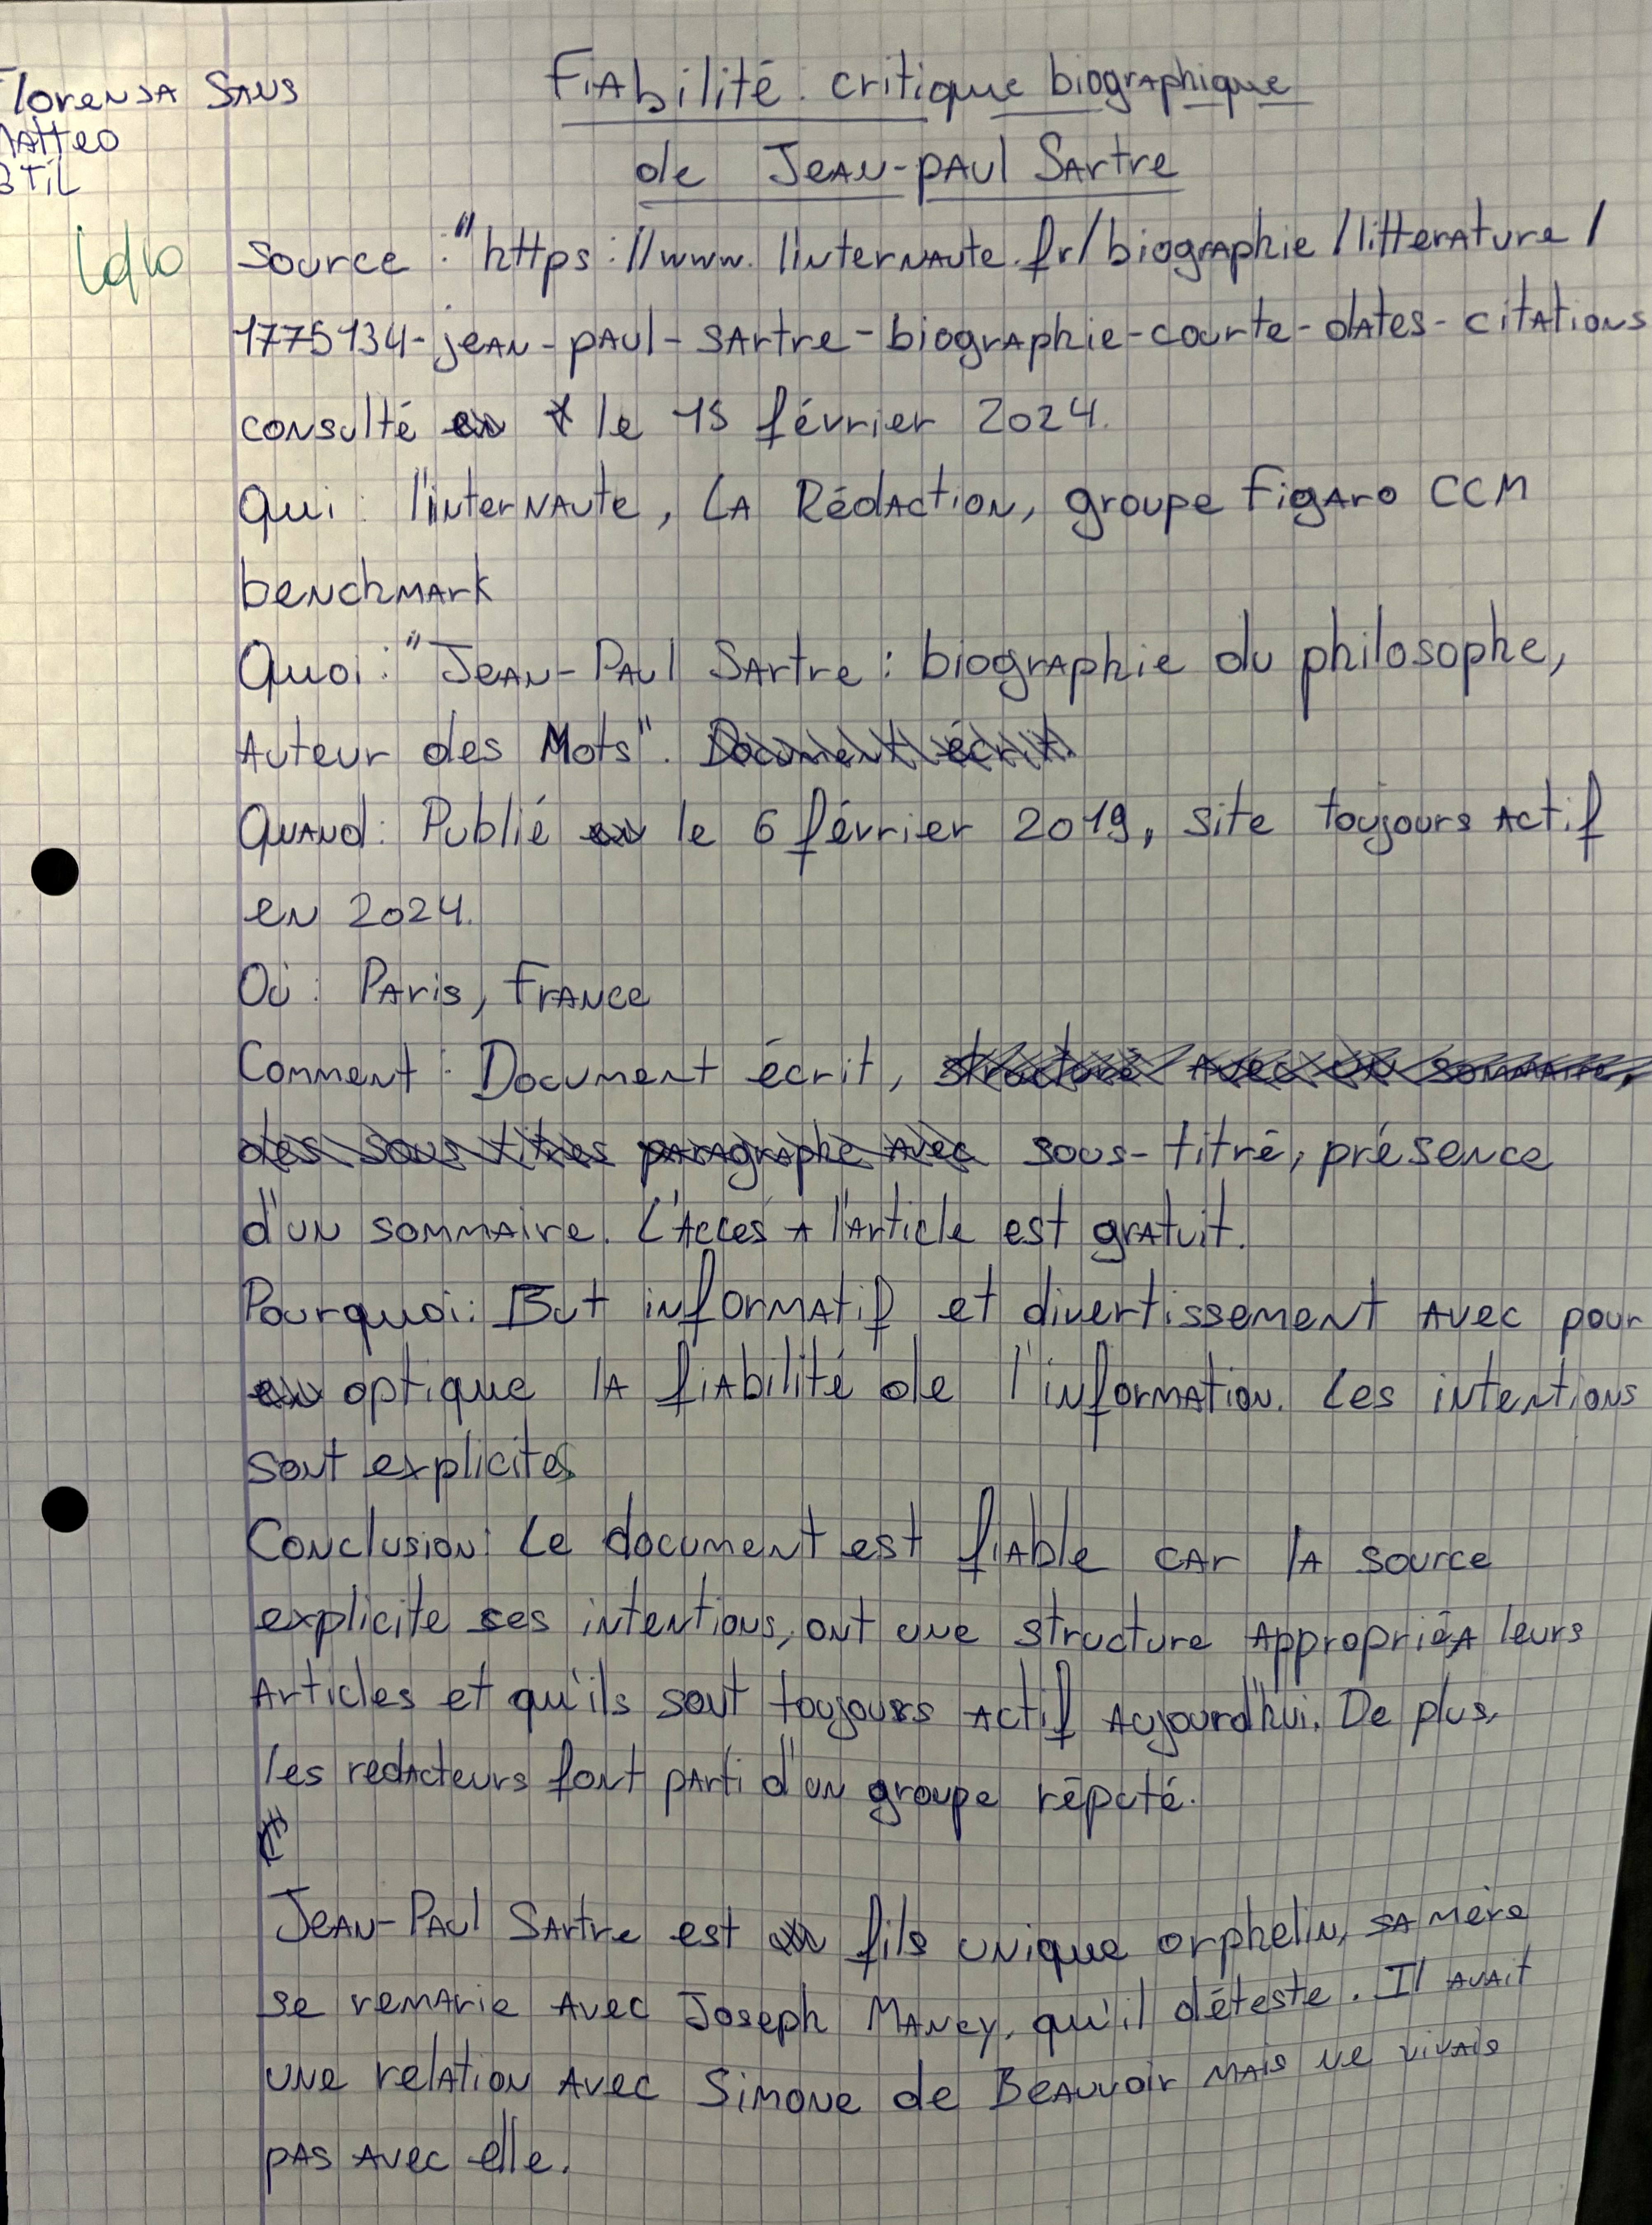 Florensa Sans
Matteo
Fiabilité critique biographique
de Jean-Paul Sartre
Source : "https://www.linternaute.fr/biographie/litterature/
1775134-jean-paul-sartre-biographie-courte-dates-citations
consulté le 15 février 2024.
Qui : l'internaute, La Rédaction, groupe Figaro CCM
benchmark
Quoi : "Jean-Paul Sartre : biographie du philosophe,
Auteur des Mots". Document écrit.
Quand : Publié le 6 février 2019, site toujours actif
en 2024.
Où : Paris, France
Comment : Document écrit, structuré avec un sommaire,
des sous titres paragraphe avec sous-titré, présence
d'un sommaire. L'accès a l'article est gratuit.
Pourquoi : But informatif et divertissement avec pour
optique la fiabilité de l'information. Les intentions
sont explicites
Conclusion : Le document est fiable car la source
explicite ses intentions, ont une structure appropriée a leurs
articles et qu'ils sont toujours actif aujourd'hui. De plus,
les redacteurs font parti d'un groupe réputé.
Jean-Paul Sartre est fils unique orphelin, sa mère
se remarie avec Joseph Mancy, qu'il déteste. Il avait
une relation avec Simone de Beauvoir mais ne vivais
pas avec elle.